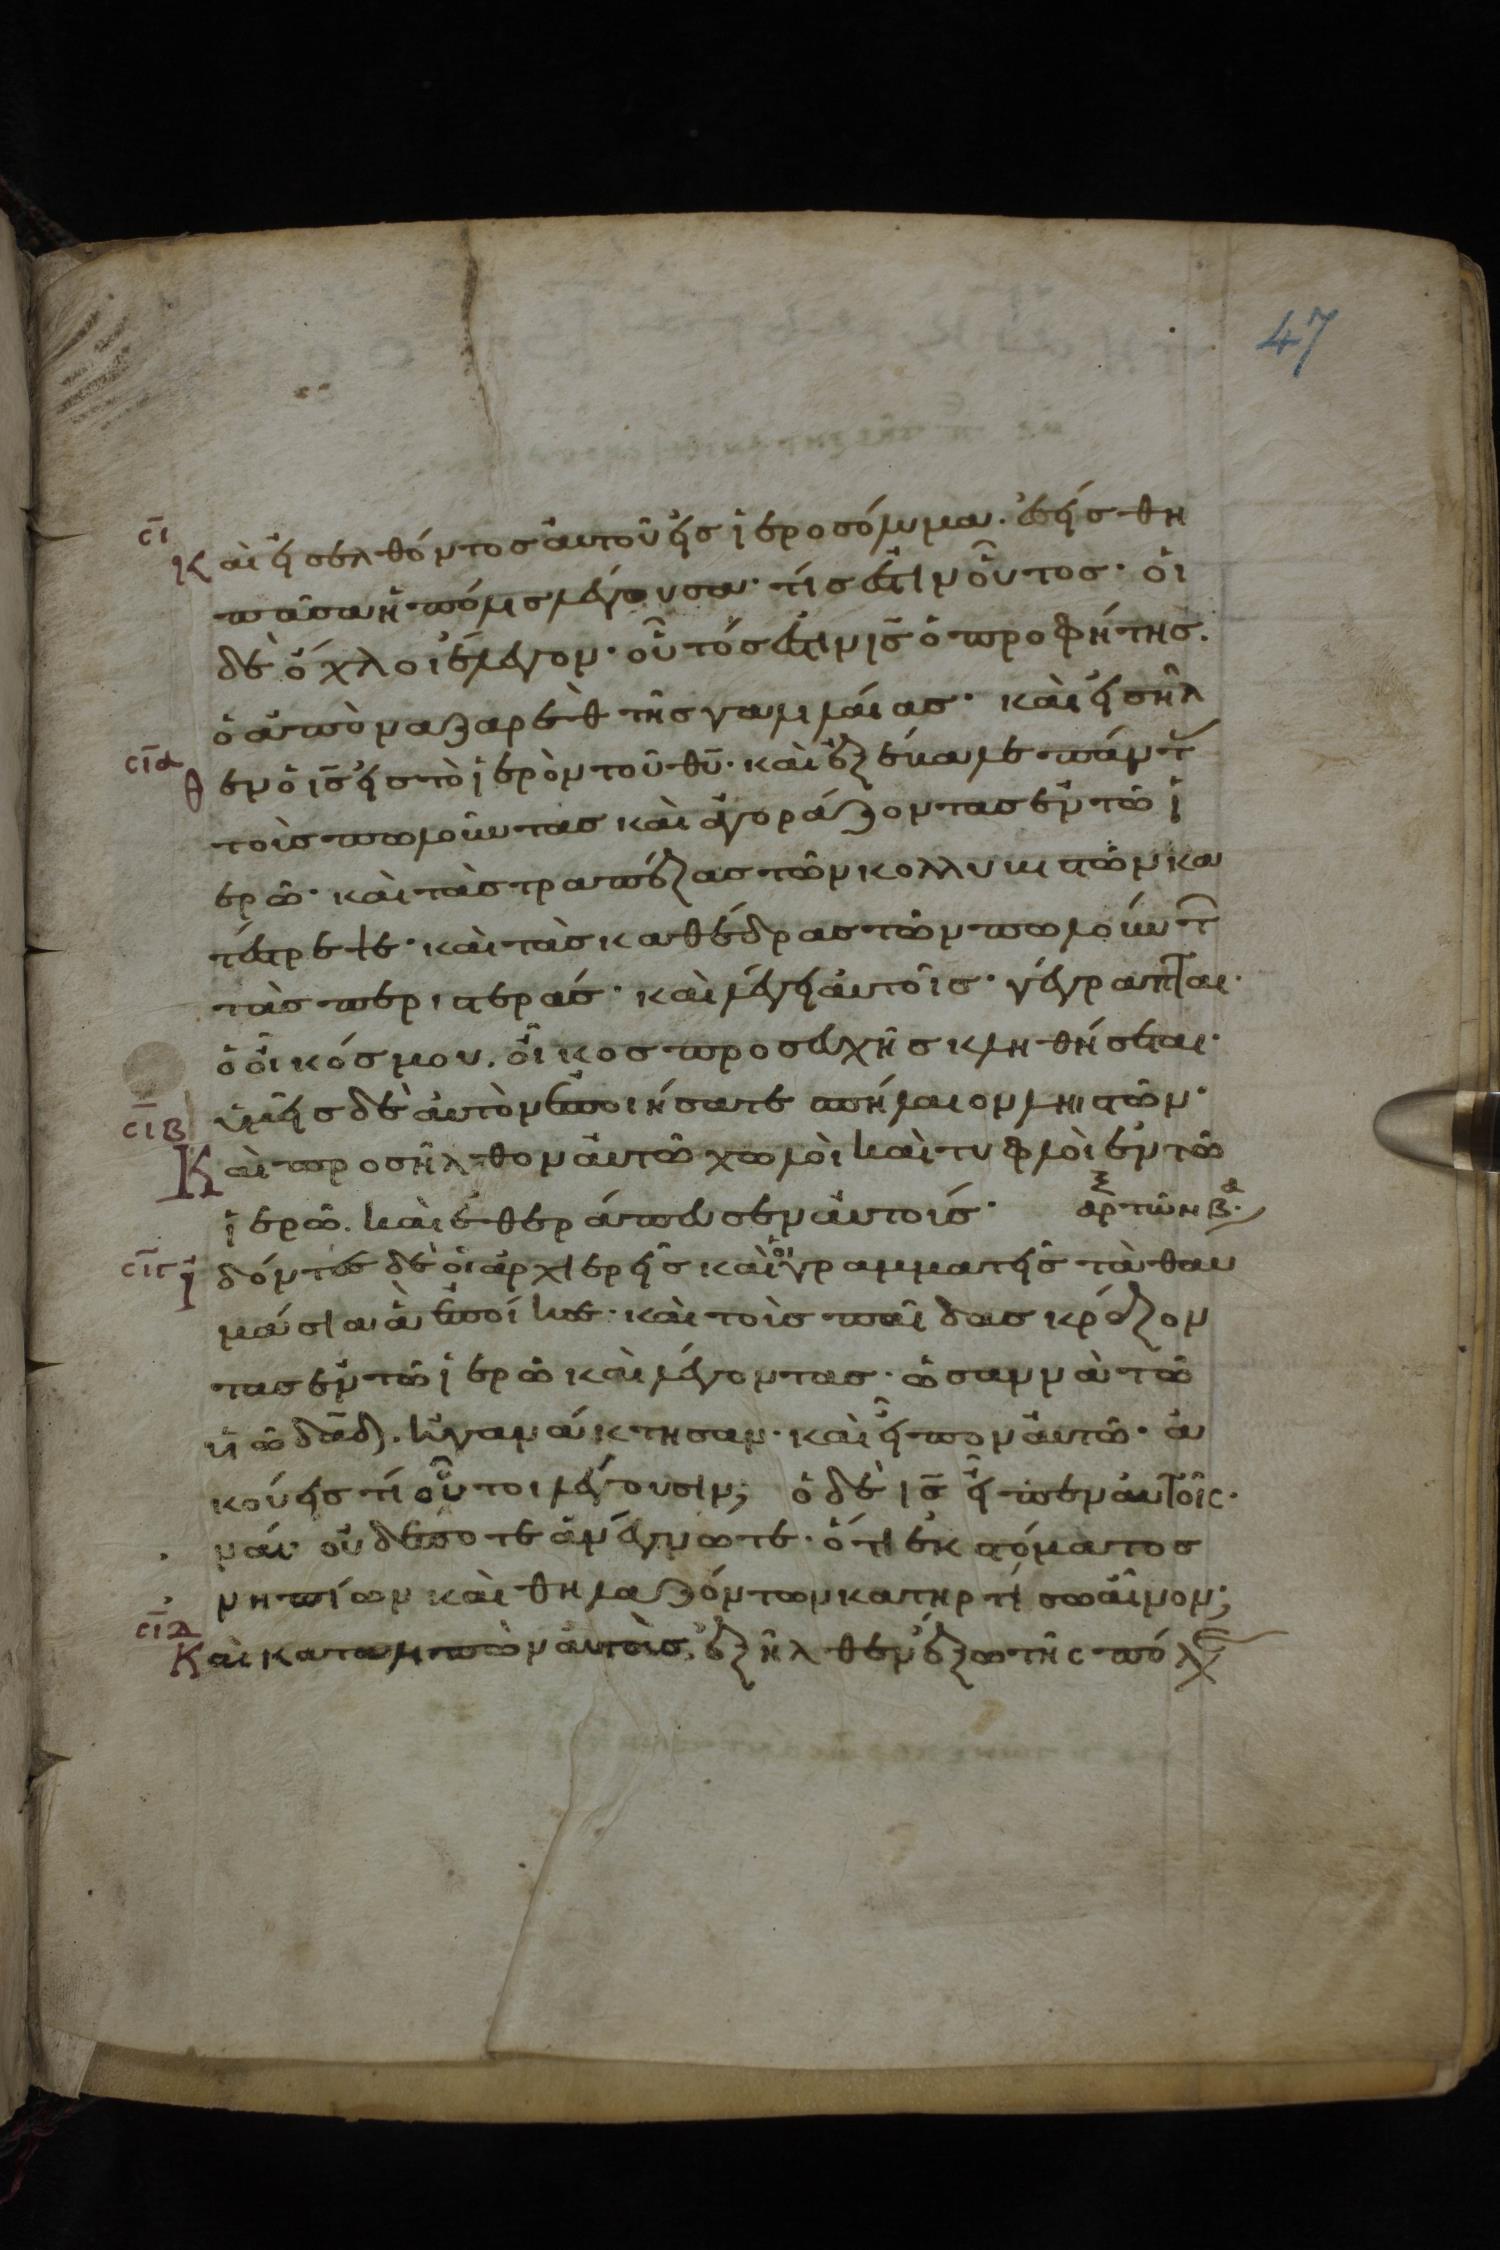 47
σι Καὶ εἰσελθόντος αὐτοῦ εἰς ἱεροσόλυμα· ἐσείσθη
πᾶσα ἡ πόλις λέγουσα· τίς ἐστιν οὗτος· οἱ
δὲ ὄχλοι ἔλεγον· οὗτός ἐστιν ις̅ ὁ προφήτης.
ὁ ἀπὸ ναζαρὲθ τῆς γαλιλαίας· καὶ εἰσῆλ
σια θεν ὁ ις̅ εἰς τὸ ἱερὸν τοῦ θυ̅· καὶ ἐξέβαλε πάντ
τοὺς πωλοῦντας καὶ ἀγοράζοντας ἐν τῶ ἱ
ερῶ· καὶ τὰς τραπέζας τῶν κολλυβιστῶν κα
τέστρεψε· καὶ τὰς καθέδρας τῶν πωλούντ
τὰς περιστεράς· καὶ λέγει αὐτοῖς· γέγραπται·
ὁ οἶκός μου. οἶκος προσευχῆς κληθήσεται·
ὑμεῖς δὲ αὐτὸν ἐποιήσατε σπήλαιον ληιστῶν·
σιβ Καὶ προσῆλθον αὐτῶ χωλοὶ καὶ τυφλοὶ ἐν τῶ
ἱερῶ. καὶ ἐθεράπευσεν αὐτούς· ἀρ τῶν β
σιγ ἰδόντες δὲ οἱ ἀρχιερεῖς καὶ οἱ γραμματεῖς τὰ θαυ
μάσια ἃ ἐποίησε· καὶ τοὺς παῖδας κράζον
τας ἐν τῶ ἱερῶ καὶ λέγοντας· ὡσαννὰ τῶ
υἱῶ δᾱδ. ἠγανάκτησαν· καὶ εἶπον αὐτῶ· ἀ
κούεις τί οὗτοι λέγουσιν; ὁ δὲ ις̅ εἶπεν αὐτοῖς·
ναί· οὐδέποτε ἀνέγνωτε· ὅτι ἐκ στόματος
νηπίων καὶ θηλαζόντων κατηρτίσω αἶνον;
σιδ Καὶ καταλιπὼν αὐτοὺς, ἐξῆλθεν ἔξω τῆς πόλ